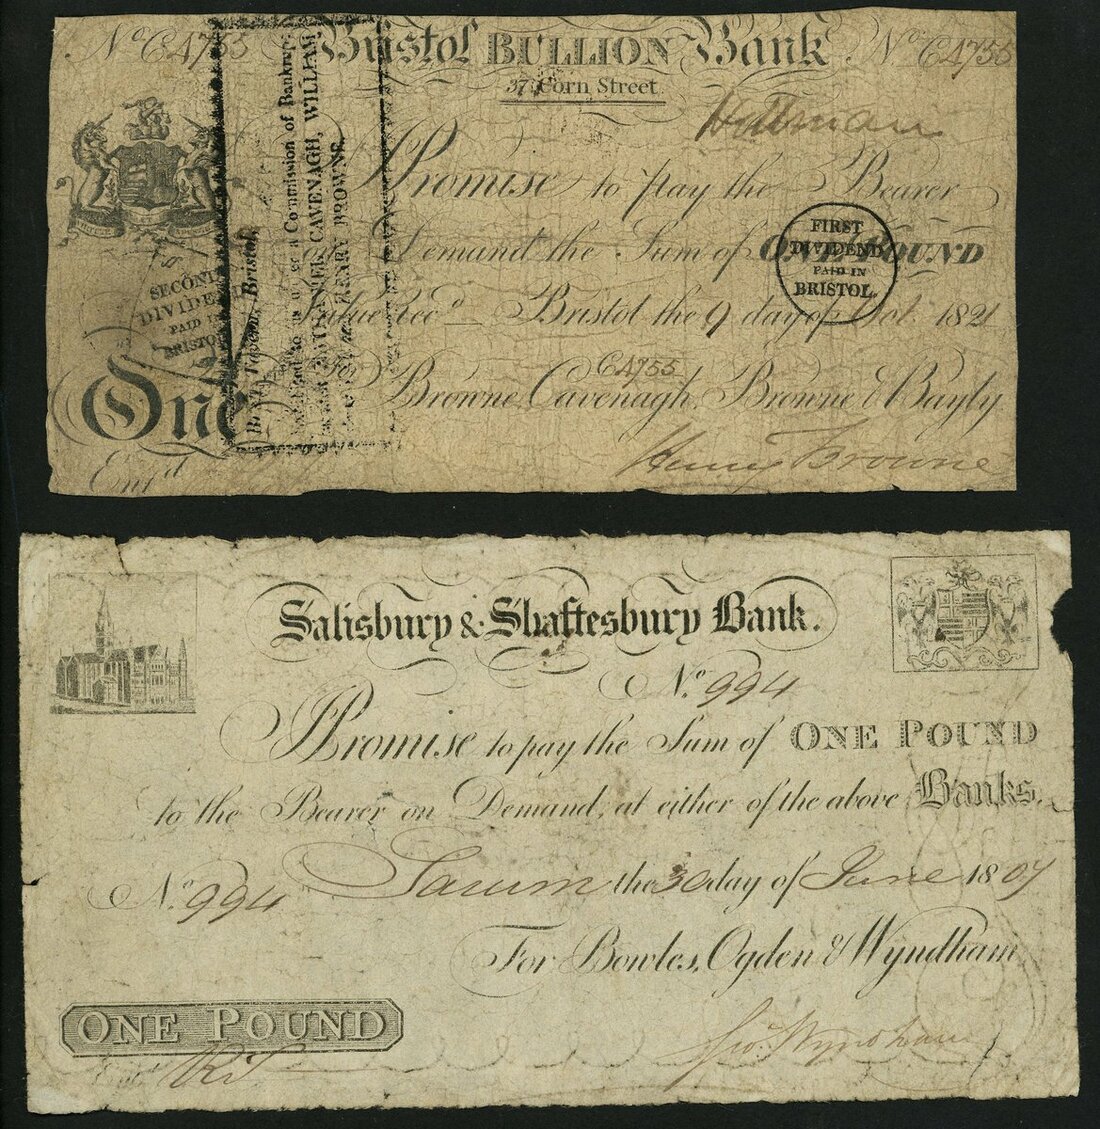 No CA755 Bristol BULLION Bank No CA755
37, Corn Street
I Promise to pay the Bearer
Demand the Sum of ONE POUND
Value Recd Bristol the 9 day of Oct 1821
CA755
Browne, Cavenagh, Browne & Bayly
Henry Browne
One
Entd
a Commission of Bankrupt
CAVENAGH, WILLIAM
HENRY BROWNE.
Bristol.
FIRST
DIVIDEND
PAID IN
BRISTOL.
SECOND
DIVIDEND
PAID IN
BRISTOL
Salisbury & Shaftesbury Bank.
No. 994
I Promise to pay the Sum of ONE POUND
to the Bearer on Demand, at either of the above Banks.
No. 994 Sarum the 30 day of June 1807
For Bowles, Ogden & Wyndham
ONE POUND
Geo. Wyndham